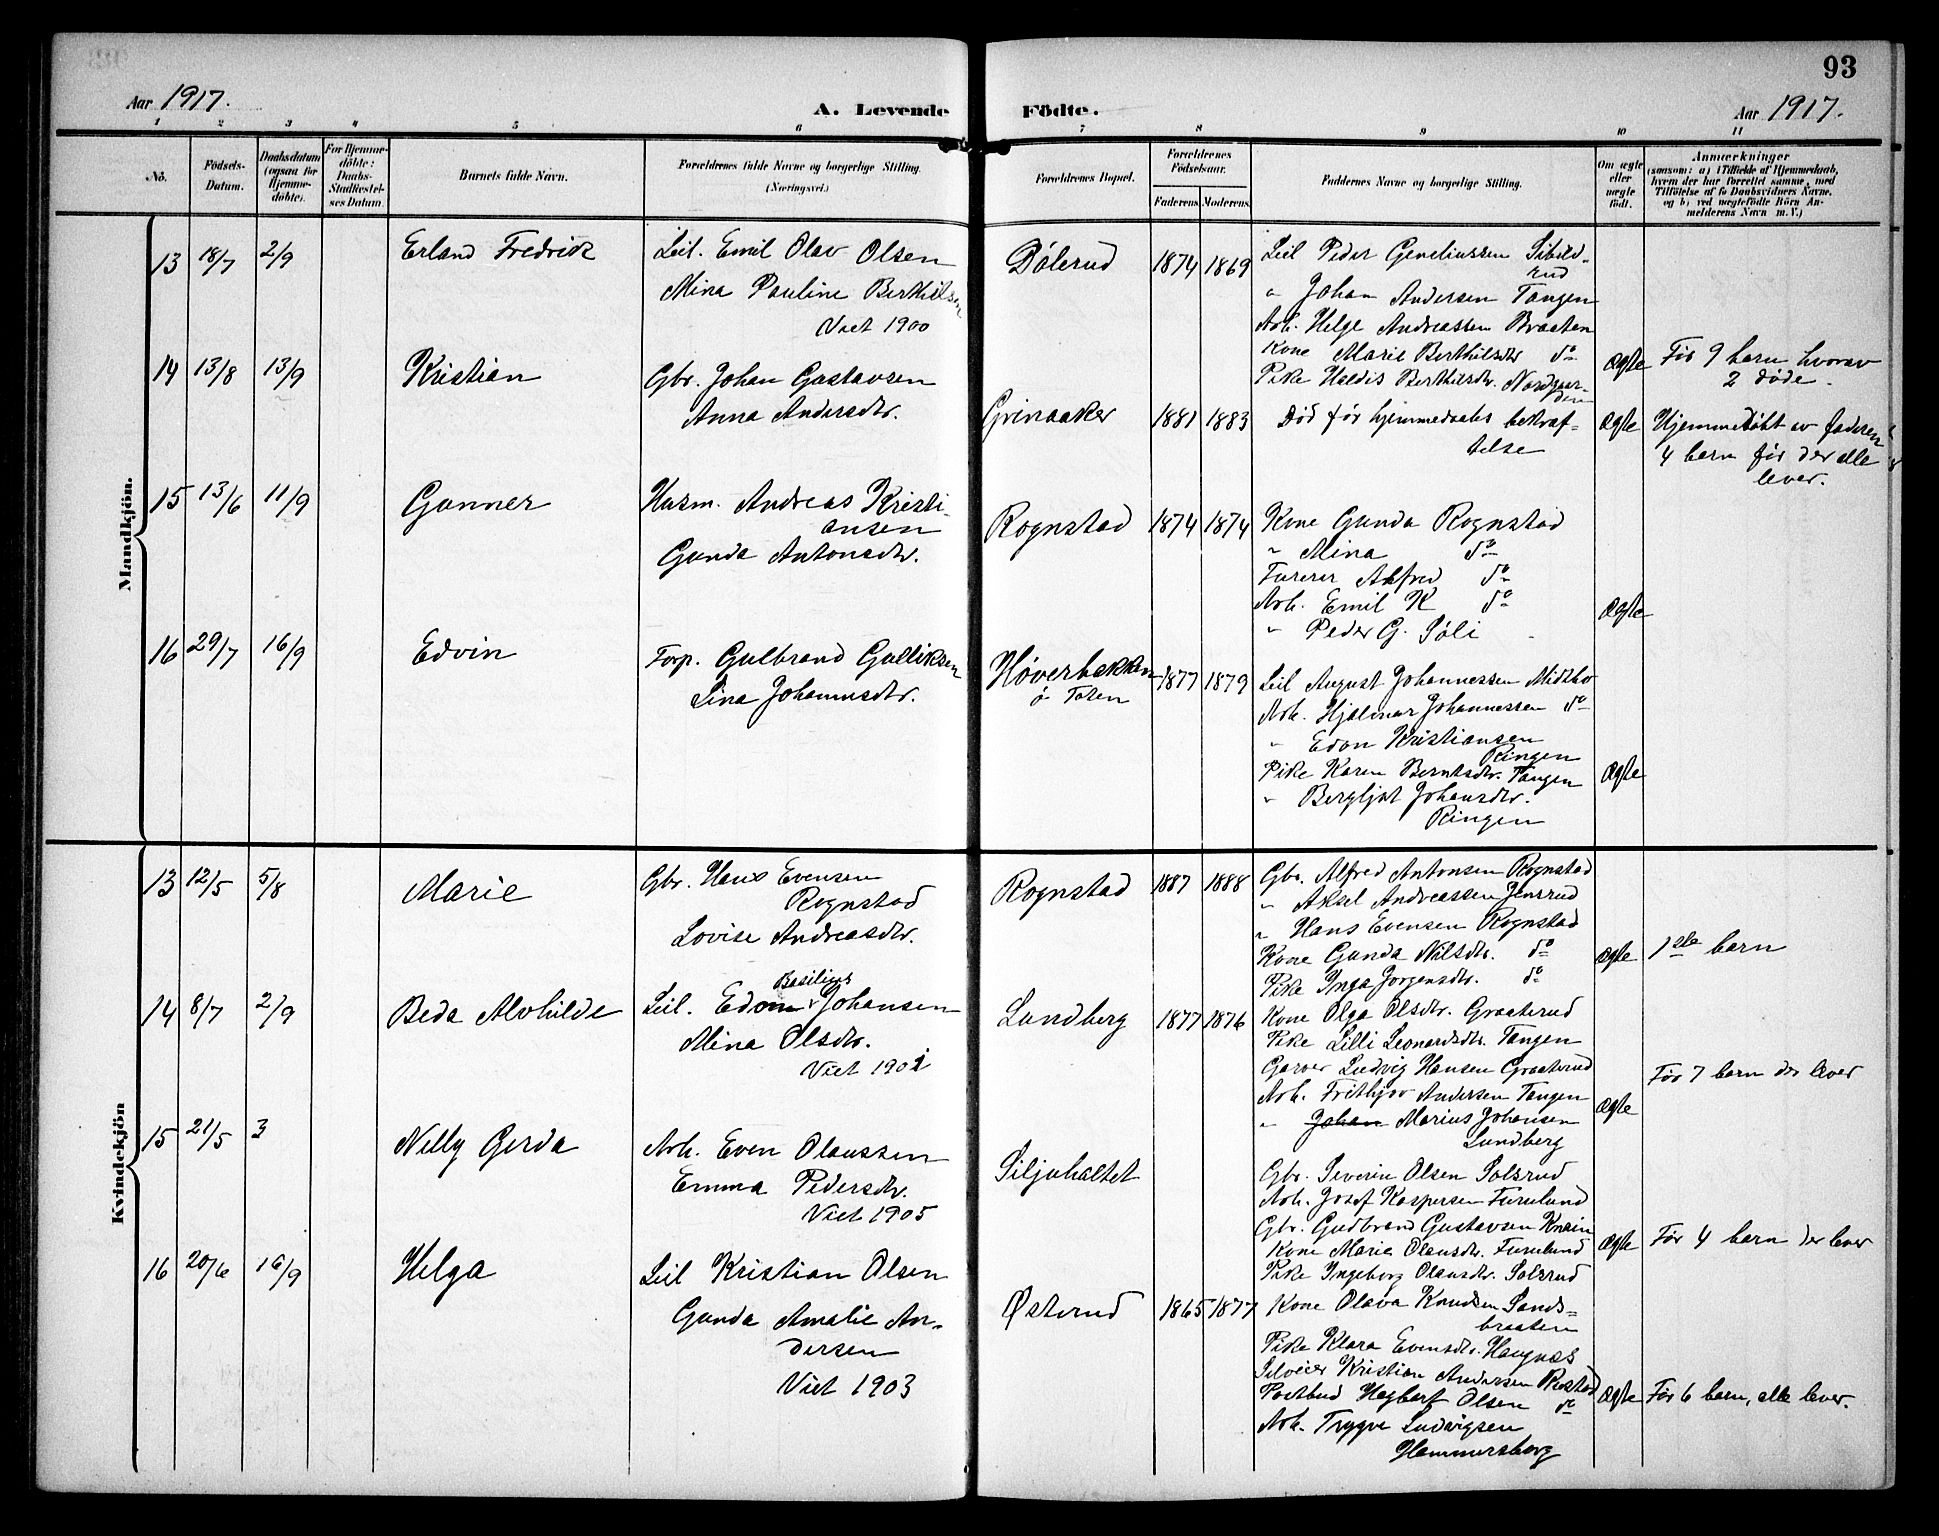 93
Aar 1917.
A. Levende Födte.
Aar 1917.
1 2 3 4 5 6 7 8 9 10 11
Nö.
Födsels-
Datum.
Daabsdatum
(ogsaa for
Hjemme-
döbte).
For Hjemme-
döbte:
Daabs-
Stadfæstel-
ses Datum.
Barnets fulde Navn.
Forældrenes fulde Navne og borgerlige Stilling.
(Næringsvei.)
Forældrenes Bopæl.
Forældrenes
Födselsaar.
Faderens Moderens.
Faddernes Navne og borgerlige Stilling.
Om ægte
eller
uægte
födt.
Anmærkninger
(saasom: a) i Tilfælde af Hjemmedaab,
hvem der har forrettet samme, med
Tilföielse af to Daabsvidners Navne.
og b) ved uægtefödte Börn An-
melderens Navn m. V.)
Mandkjön.
13 18/7 2/9 Erland Fredrik
Leil. Emil Olav Olsen
Mina Pauline Berthilsen
Viet 1900
Dölerud 1874 1869
Leil Peder Geneliussen Sibild-
rud
" Johan Andersen Tangen
Arb. Helge Andreassen Braaten
Kone Marie Berthilsdtr do
Pike Haldis Berthilsdtr. Nordgaar-
den
ægte
Før 9 barn hvorav
2 døde.
14 13/8 13/9 Kristian
Gbr. Johan Gustavsen
Anna Andersdtr.
Grinaaker 1881 1883
Død før hjemmedaabs bekræf-
telse
ægte
Hjemmedøbt av faderen
4 barn før der alle
lever.
15 13/6 11/9 Gunner
Husm. Andreas Kristi-
ansen
Gunda Antonsdtr.
Rognstad 1874 1874
Kone Gunda Rognstad
" Mina do
Furerer Alfred do
Arb. Emil K do
" Peder G. Søli
ægte
16 29/7 16/9 Edvin
Forp. Gulbrand Gulliksen
Lina Johannesdtr.
Høverbakken
ö Toten
1877 1879
Leil August Johannessen Midtbo
Arb. Hjalmar Johannessen do
" Edon Kristiansen
Ringen
Pike Karen Berntsdtr. Tangen
" Bergljot Johansdtr.
Ringen
ægte
Kvindekjön
13 12/5 5/8 Marie
Gbr. Hans Evensen
Rognstad
Lovise Andreasdtr.
Rognstad 1887 1888
Gbr. Alfred Antonsen Rognstad
" Aksel Andreassen Jensrud
" Hans Evensen Rognstad
Kone Gunda Nilsdtr. do
Pike Inga Jorgensdtr. do
ægte
1ste barn
14 8/7 2/9 Beda Alvhilde
Basilius
Leil. Edvin Johansen
Mina Olsdtr.
Viet 1901
Lundberg 1877 1876
Kone Olga Olsdtr. Graaterud
Pike Lilli Leonardsdtr. Tangen
Garver Ludvig Hansen Graaterud
Arb. Frithjov Andersen Tangen
" Johan Marius Johansen
Lundberg
ægte
Før 7 barn der lever
15 21/5 3 Nelly Gerda
Arb. Even Olaussen
Emma Pedersdtr.
Viet 1905
Siljuholtet
Gbr. Severin Olsen Solsrud
Arb. Josef Kaspersen Furulund
Gbr. Gudbrand Gustavsen Knain
Kone Marie Olausdtr. Furulund
Pike Ingeborg Olausdtr. Solsrud
ægte
Før 4 barn der lever
16 20/6 16/9 Helga
Leil Kristian Olsen
Gunda Amalie An-
dersen
Viet 1903
Østerud 1865 1877
Kone Olava Knudsen Sands-
braaten
Pike Klara Evensdtr. Haugnæs
Kristian Andersen
Postbud Hagbart Olsen do
Arb. Trygve Ludvigsen
Hammersborg
ægte
Før 6 barn, alle lever.